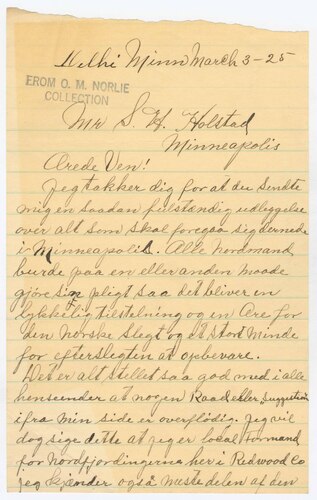 Delhi Minn March 3-25
FROM O. M. NORLIE
COLLECTION
Mr S. H. Holstad
Minneapolis
Ærede Ven!
Jeg takker dig for at du sendte
mig en saadan fulstændig udleggelse
over alt som skal foregaa sig dernede
i Minneapolis. Alle Nordmænd
burde paa en eller anden maade
gjöre sin pligt saa det bliver en
lykkelig tilstelning og en Ære for
den Norske Slegt og et stort Minde
for efterslegten at opbevare.
Det er alt stellet saa god med i alle
henseender at nogen Raad eller Suggestion
ifra min side er overflödig. Jeg vil
dog sige dette at jeg er local Formand
for Nordfjordingerne her i Redwood Co
jeg kjender også meste delen af den